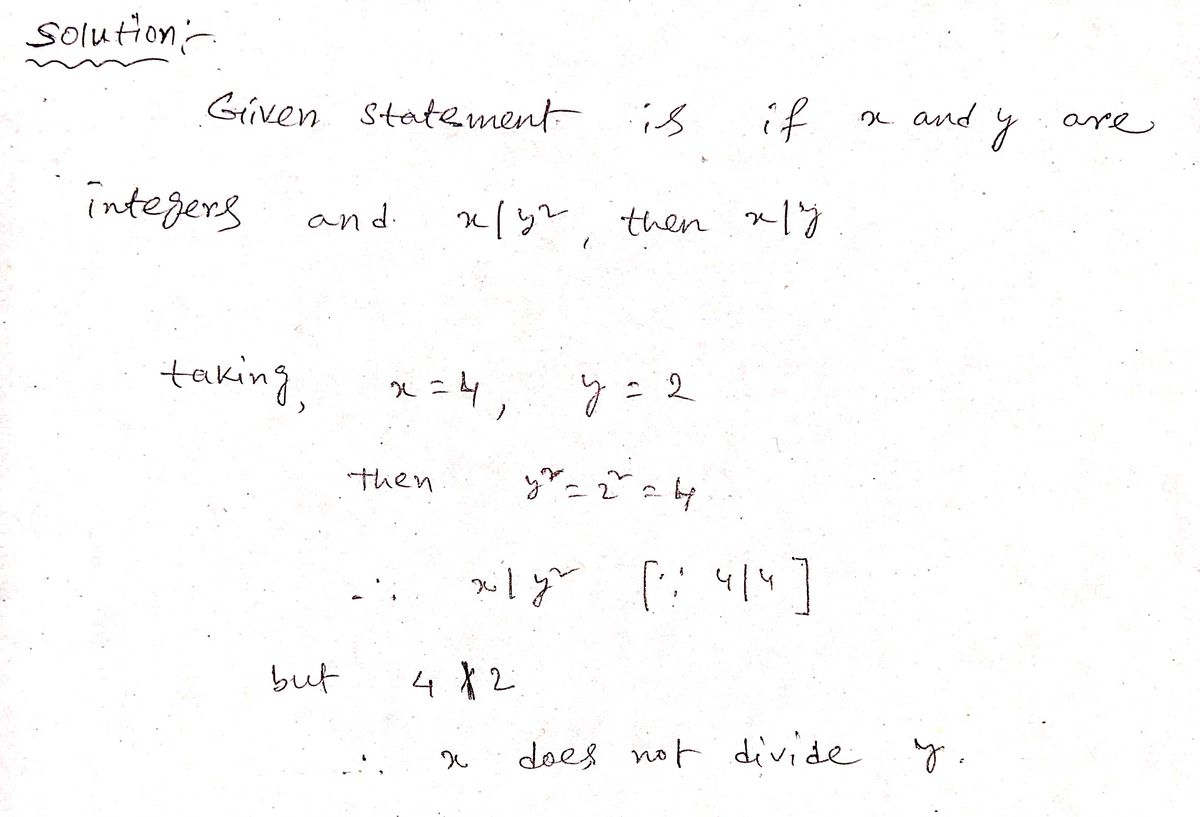 Solution:-
Given statement is if x and y are
integers and x|y², then x|y.
taking, x = 4, y = 2
then y² = 2² = 4
∴ x|y² [∵ 4|4]
but 4 ∤ 2
∴ x does not divide y.